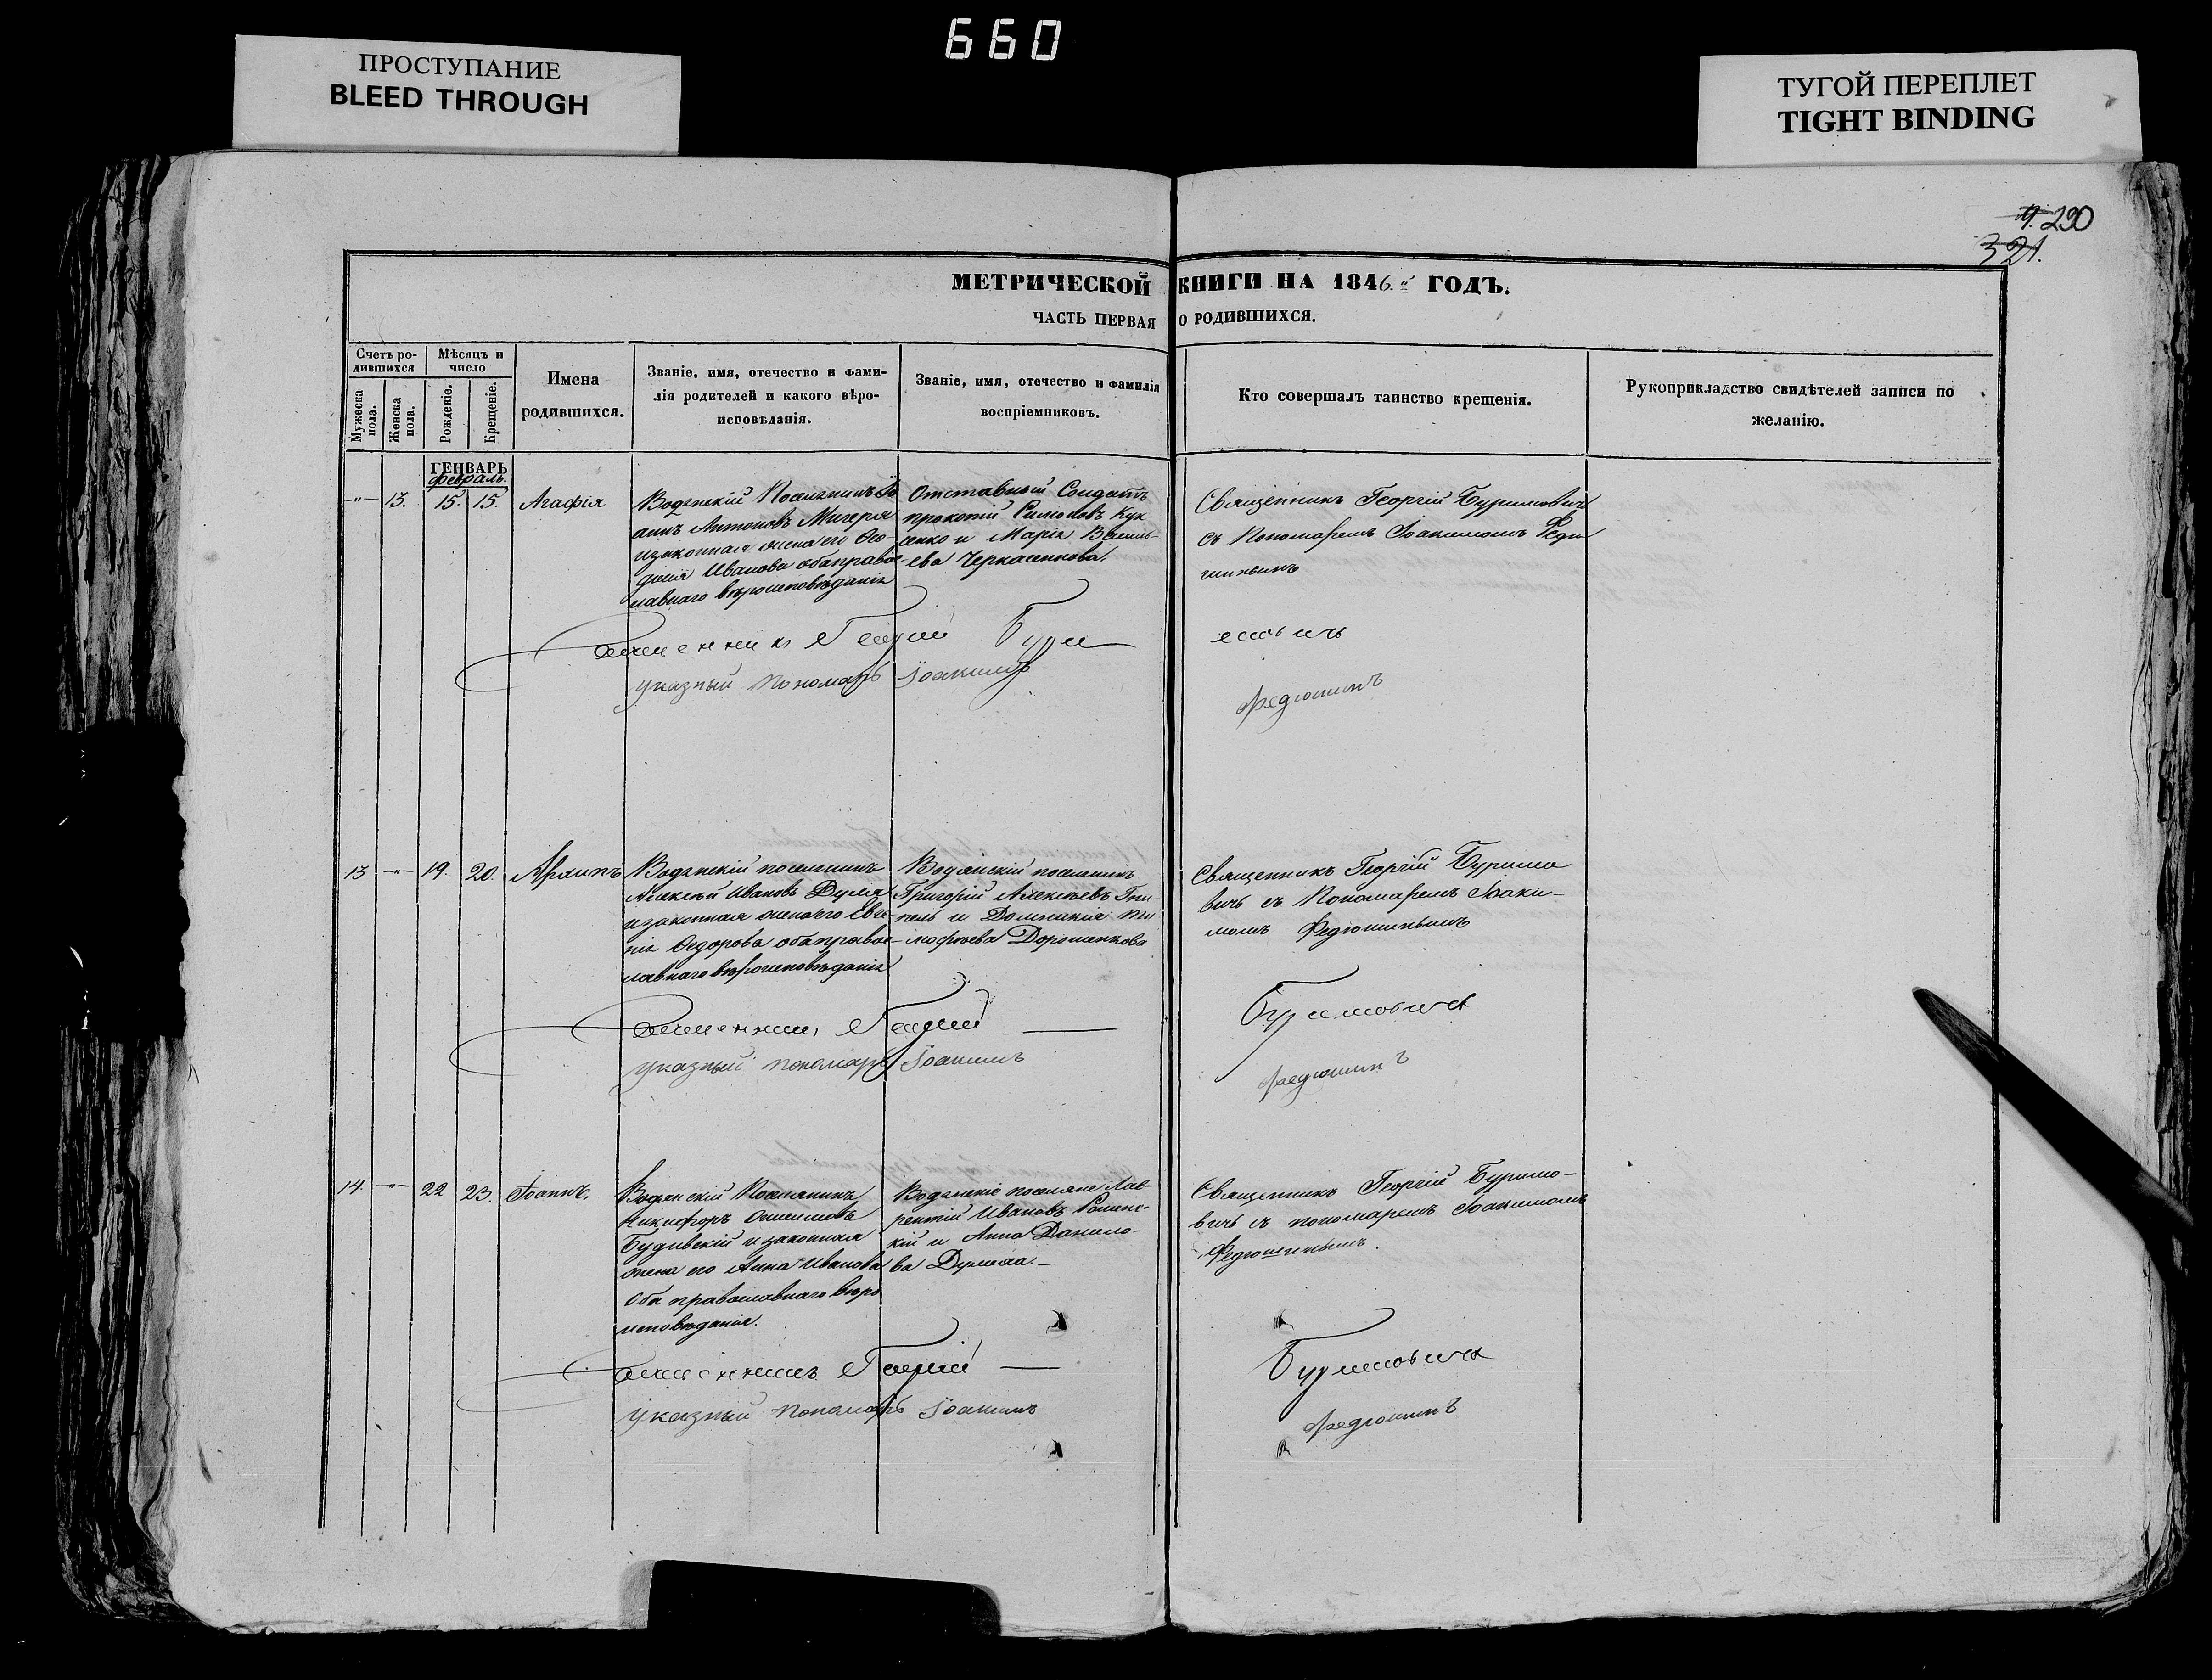 660
ПРОСТУПАНИЕ
BLEED THROUGH
ТУГОЙ ПЕРЕПЛЕТ
TIGHT BINDING
290
321.
МЕТРИЧЕСКОЙ КНИГИ НА 1846.й ГОДЪ.
ЧАСТЬ ПЕРВАЯ О РОДИВШИХСЯ.
Счетъ ро-
дившихся
Мужеска
пола.
Женска
пола.
Мѣсяцъ и
число
Рожденіе.
Крещеніе.
Имена
родившихся.
Званіе, имя, отечество и фами-
лія родителей и какого вѣро-
исповѣданія.
Званіе, имя, отечество и фамилія
воспріемниковъ.
Кто совершалъ таинство крещенія.
Рукоприкладство свидѣтелей записи по
желанію.
ГЕНВАРЬ
февраль.
-"-
13.
15.
15.
Агафія
Водянскій Поселянинъ Іо
аннъ Антоновъ Мигеря
и законная жена его
Иванова оба правос-
лавнаго вѣроисповѣданія
Отставный Солдатъ
прокопій Кук-
сенко и Марія Василь-
ева Черкасенкова.
Священникъ Георгій Буримовичь
съ Пономаремъ Іоакимомъ Федю
шинымъ
Священникъ Георгій Бури
мовичь
указный пономарь Іоакимъ
Федюшинъ
13
-"-
19.
20.
Архипъ
Водянскій поселянинъ
Алексѣй Ивановъ Дуля
и законная жена его Евге
нія Федорова оба правос-
лавнаго вѣроисповѣданія
Водянскій поселянинъ
Григорій Алексѣевъ
и Домникія Ти
мофѣева Дорошенкова
Священникъ Георгій Буримо
вичь съ Пономаремъ Іоаки-
момъ Федюшинымъ
Священникъ Георгій
Буримовичь
указный пономарь Іоакимъ
Федюшинъ
14.
-"-
22
23.
Іоаннъ.
Водянскій Поселянинъ
Никифоръ
и законная
жена его Анна Иванова
Оба православнаго вѣро
исповѣданія.
Водянскіе поселяне Лав-
рентій Ивановъ Роменс-
кій и Анна Данило-
ва
Священникъ Георгій Буримо-
вичь съ пономаремъ Іоакимомъ
Федюшинымъ.
Священникъ Георгій
Буримовичь
указный пономарь Іоакимъ
Федюшинъ